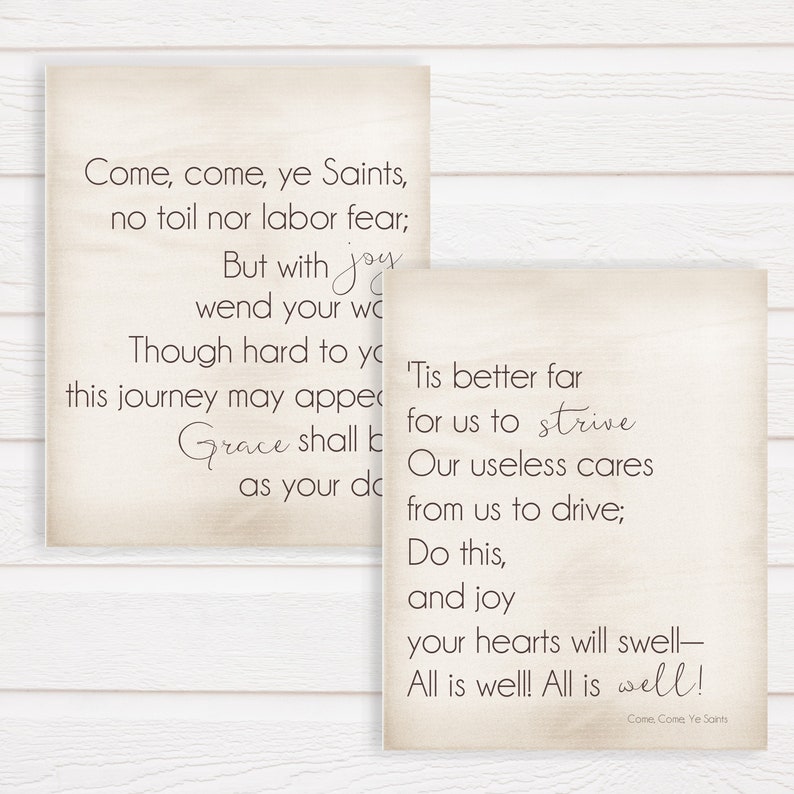 Come, come, ye Saints,
no toil nor labor fear;
But with joy
wend your wa
Though hard to yo
this journey may appea
Grace shall b
as your da
'Tis better far
for us to strive
Our useless cares
from us to drive;
Do this,
and joy
your hearts will swell—
All is well! All is well!
Come, Come, Ye Saints